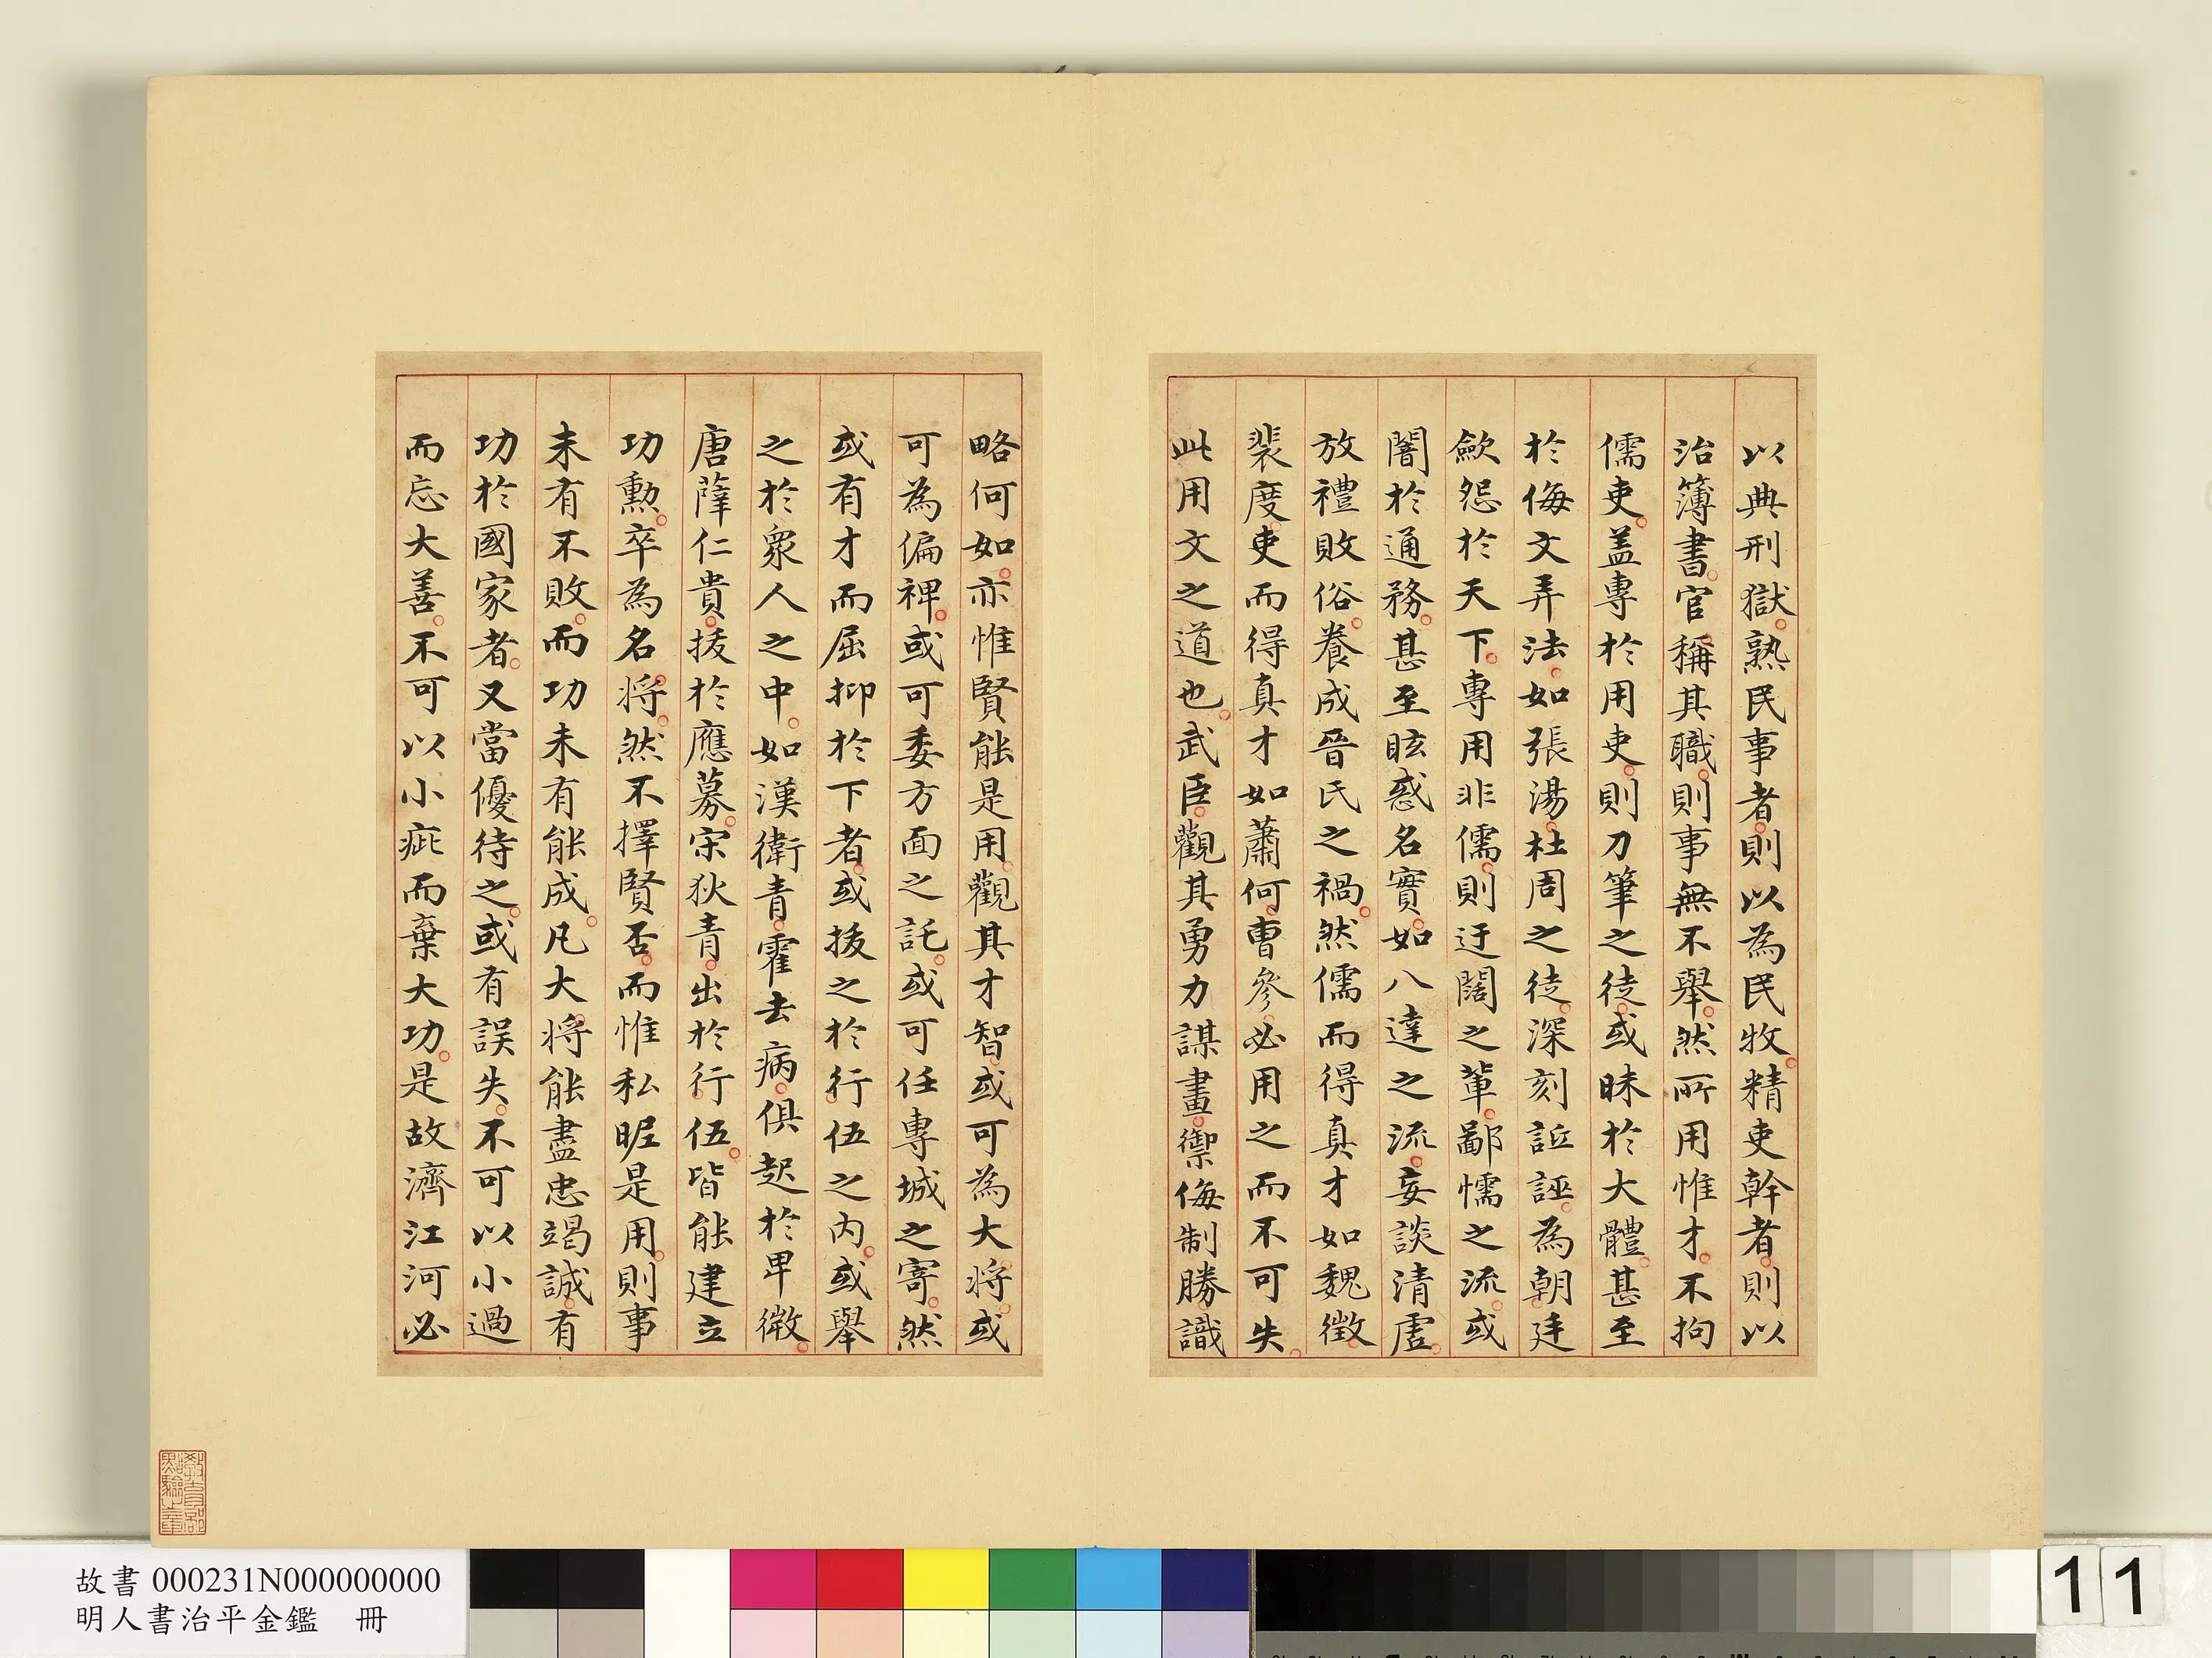 以典刑獄熟民事者則以為民牧精吏幹者則以
治簿書官稱其職則事無不舉然所用惟才不拘
儒吏蓋專於用吏則刀筆之徒或昧於大體甚至
於侮文弄法如張湯杜周之徒深刻詆誣為朝廷
歛怨於天下專用非儒則迂闊之輩鄙懦之流或
闇於通務甚至眩惑名實如八達之流妄談清虛
放禮敗俗養成晉氏之禍然儒而得真才如魏徵
裴度吏而得真才如蕭何曹參必用之而不可失
此用文之道也武臣觀其勇力謀畫禦侮制勝識
略何如亦惟賢能是用觀其才智或可為大將或
可為偏裨或可委方面之託或可任專城之寄然
或有才而屈抑於下者或拔之於行伍之內或舉
之於衆人之中如漢衛青霍去病俱起於卑微
唐薛仁貴拔於應募宋狄青出於行伍皆能建立
功勳卒為名將然不擇賢否而惟私昵是用則事
未有不敗而功未有能成凡大將能盡忠竭誠有
功於國家者又當優待之或有誤失不可以小過
而忘大善不可以小疵而棄大功是故濟江河必
教育部點驗之章
故書 000231N000000000
明人書治平金鑑 冊
11